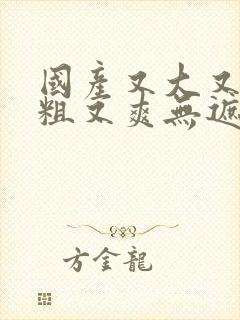 國產又大又
粗又爽無遮
方金龍